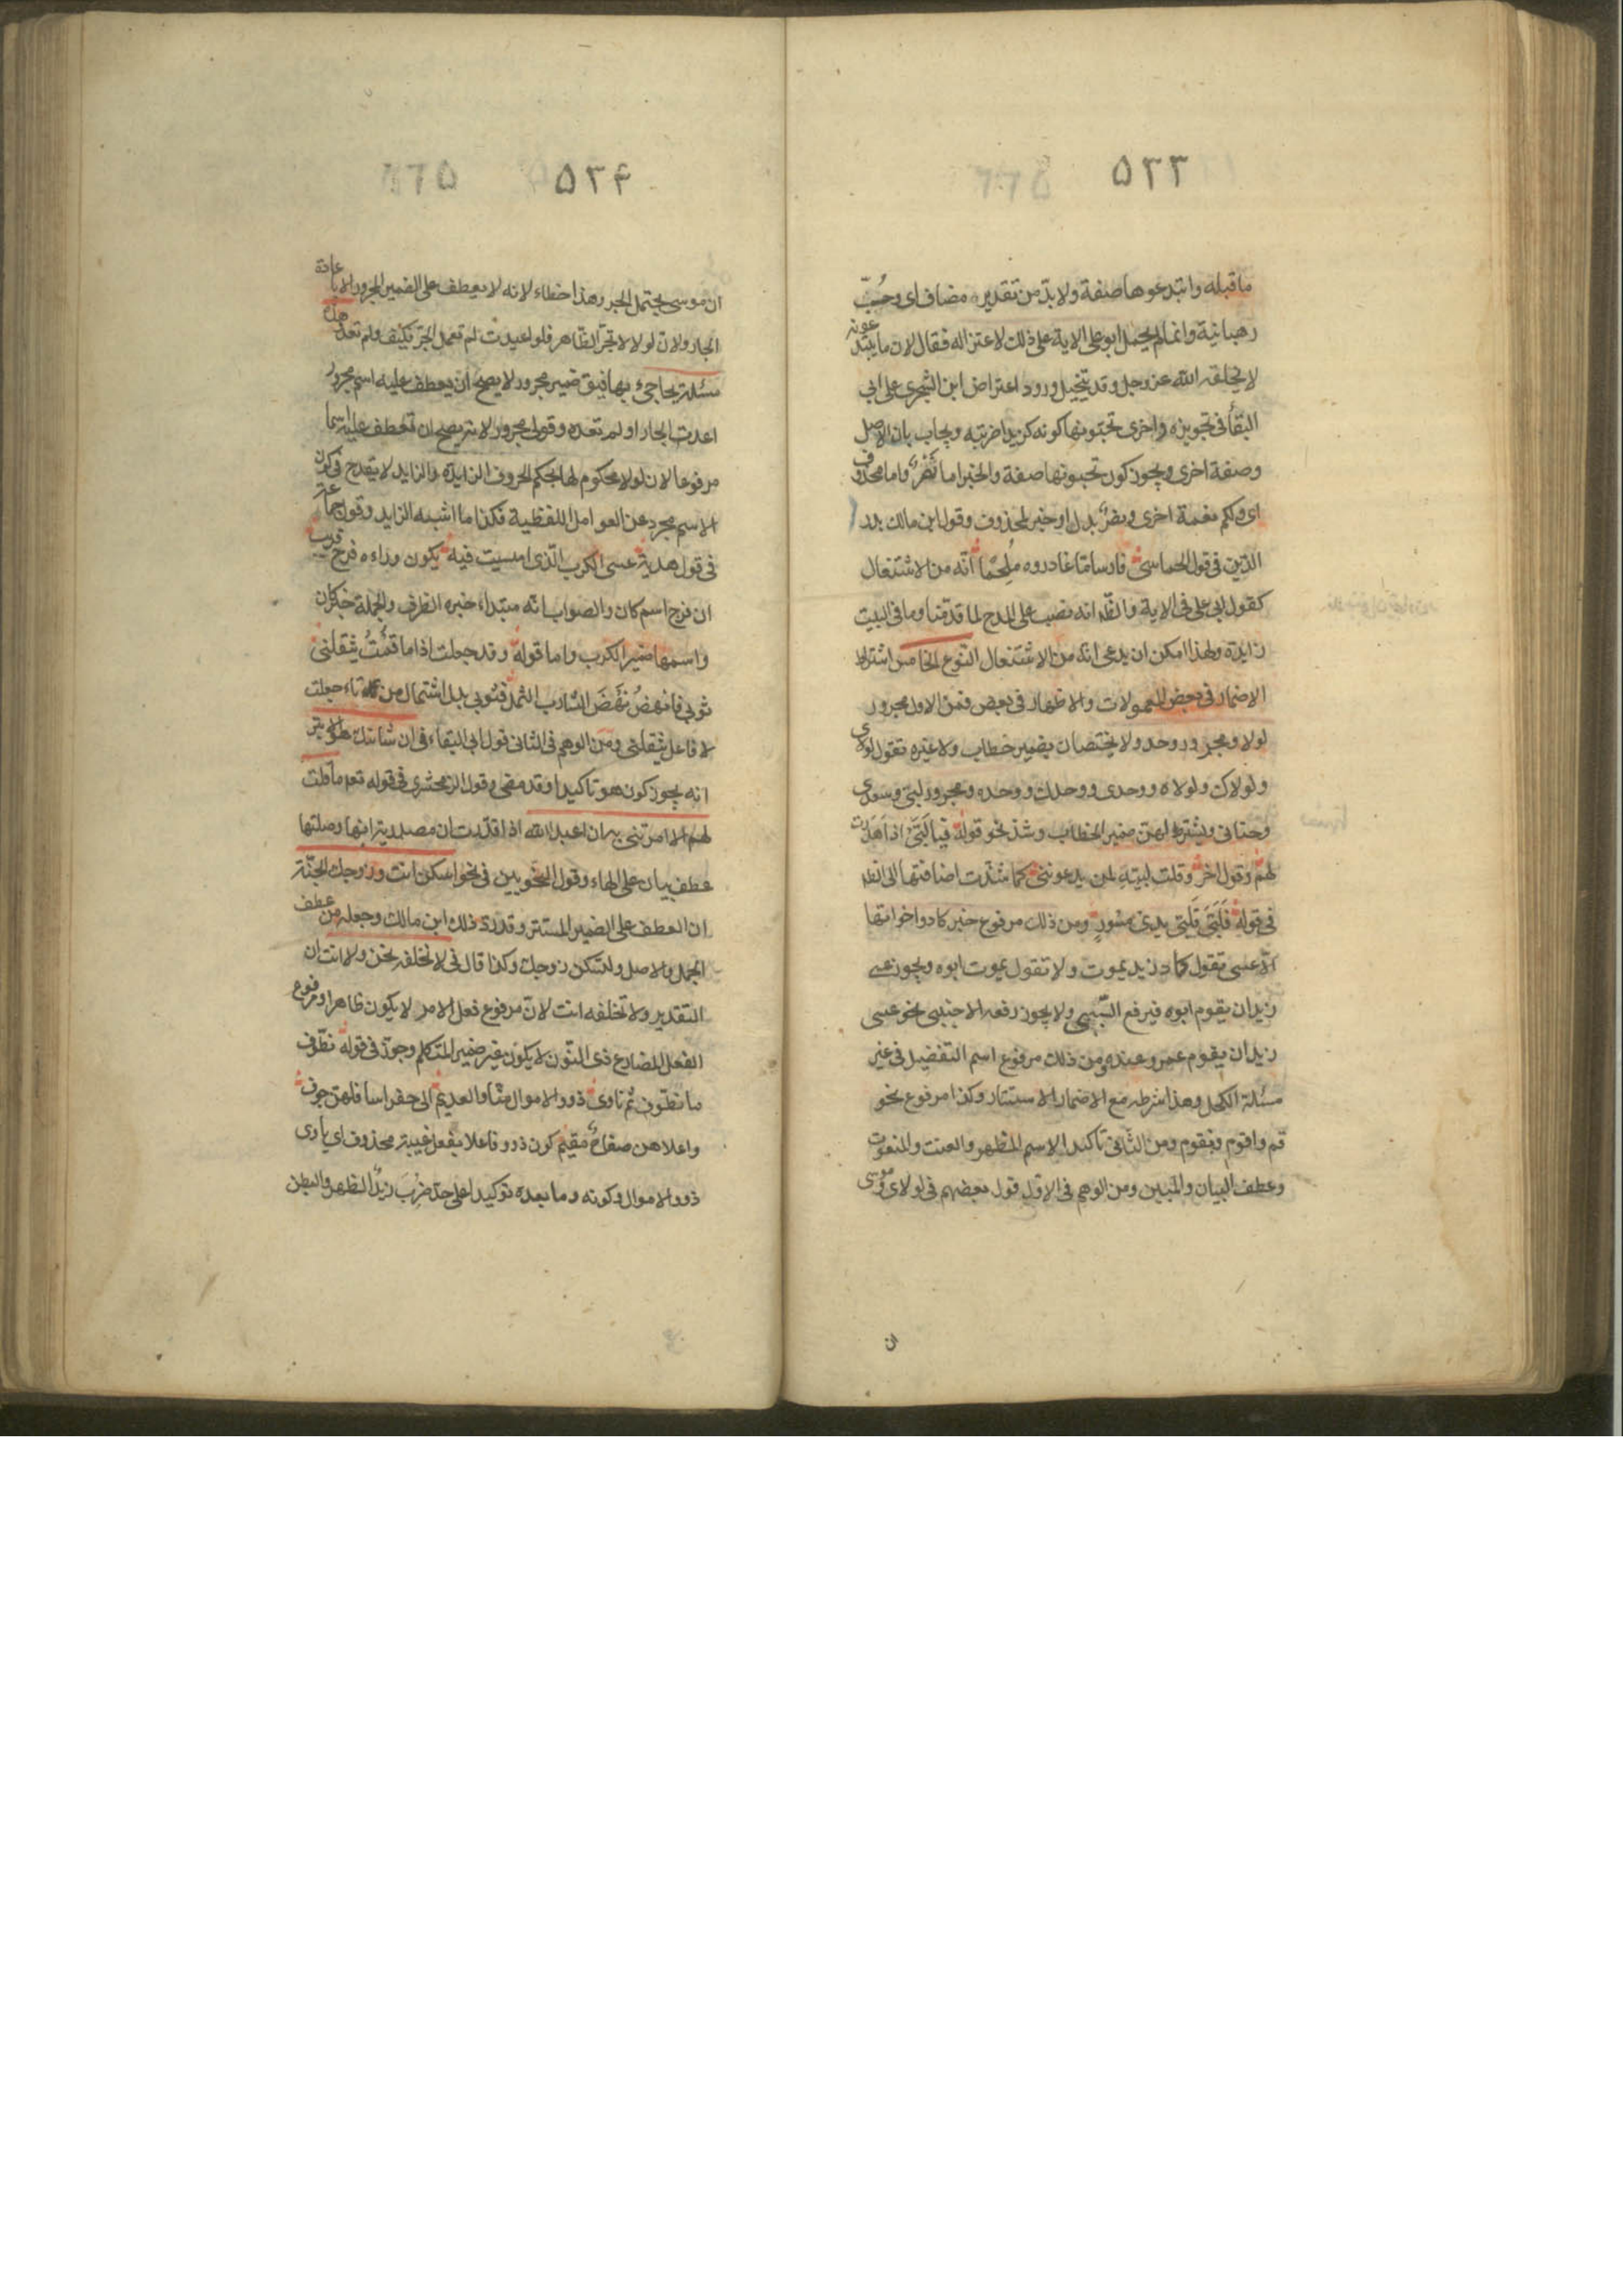 ٥٣٣
ما قبله وابتدعوها صفة ولا بدّ من تقدير مضاف اى وحُبّ
رهبانية وانما لم يحمل ابو على الاية على ذلك لاعتزاله فقال لان ما يبتدعونه
لا يخلقه الله عز وجل وقد يتخيل ورود اعتراض ابن الشجرى على ابى
البقأ فى تجويزه واخرى تحبونها كونه كزيدا ضربته ويجاب بان الاصل
وصفة اخرى ويجوز كون تحبونها صفة والخبر اما نَصْرٌ واما محذوف
اى ولكم نعمة اخرى ونصرٌ بدل او خبر لمحذوف وقول ابن مالك بدر
الدّين فى قول الحماسىّ فارسا مّا غادروه مُلحَمًا انّه من الاشتغال
كقول ابى على فى الاية والظّ انه نصب على المدح لما قدّمنا وما فى البيت
زايدة ولهذا امكن ان يدعى انه من الاشتغال النوع الخامس اشتراط
الاضمار فى بعض المعمولات والاظهار فى بعض فمن الاول مجرور
لولا ومجرور وحد ولا يختصان بضمير خطاب ولا غيره تقول لولاى
ولولاك ولولاه ووحدى ووحدك ووحده ومجرور لبّى وسعدى
وحنانى ويشترط لهن ضمير الخطاب وشذ نحو قوله فيا لَبَّىْ اذا هَدَرَت
لهم وقول اخر وقلت لبيّه لمن يدعونى كما شذت اضافتها الى الظ
فى قوله فَلَبَّىَ فَلَبَّىْ يدى مسور ومن ذلك مرفوع خبر كاد واخواتها
الّا عسى تقول كاد زيد يموت ولا تقول يموت ابوه ويجوز عسى
زيد ان يقوم ابوه فيرفع السّببىّ ولا يجوز رفعه الاجنبى نحو عسى
زيد ان يقوم عمرو عنده ومن ذلك مرفوع اسم التفضيل فى غير
مسئلة الكحل وهذا شرطه مع الاضمار الاستتار وكذا مرفوع نحو
قم واقوم ونقوم ومن الثّانى تاكيد الاسم المظهر والنعت والمنعوت
وعطف البيان والمبين ومن الوهم فى الاوّل قول بعضهم فى لولاى وموسى
ان
٥٣۴
ان موسى يحتمل الجر وهذا خطاء لانه لا يعطف على الضمير المجرور الا باعادة
الجار ولان لولا لا تجرّ الظاهر فلو اعيدت لم تعمل الجرّ فكيف ولم تعد هذه
مسئلة يحاجى بها فيق ضمير مجرور لا يصح ان يعطف عليه اسم مجرور
اعدت الجار او لم تعده وقولى مجرور لانه يصح ان تعطف عليه اسما
مرفوعا لان لولا محكوم لها بحكم الحروف الزايدة والزايد لا يقدح فى كون
الاسم مجرد عن العوامل اللفظية فكذا ما اشبه الزايد وقول جماعة
فى قول هدبة عسى الكرب الّذى امسيت فيه يكون وراءه فرج قريب
ان فرج اسم كان والصواب انّه مبتداء خبره الظرف والجملة خبر كان
واسمها ضمير الكرب واما قوله وقد جعلت اذا ما قُمْتُ يثقلنى
ثوبى فانهضُ نَهْضَ الشّارب الثمل فثوبى بدل اشتمال من تاء جعلت
لا فاعل يثقلنى ومن الوهم فى الثانى قول ابى البقاء فى ان شانئك هو الابتر
انه يجوز كون هو تاكيدا وقد مضى وقول الزمخشرى فى قوله تعم ما قلت
لهم الا ما امرتنى به ان اعبد الله اذا قدّرت ان مصدرية انها وصلتها
عطف بيان على الهاء وقول النحويين فى نحو اسكن انت وزوجك الجنّة
ان العطف على الضمير المستتر وقد ردّ ذلك ابن مالك وجعله من عطف
الجمل والاصل ولتسكن زوجك وكذا قال فى لا نخلفه نحن ولا انت ان
التقدير ولا تخلفه انت لانّ مرفوع فعل الامر لا يكون ظاهرا ومرفوع
الفعل المضارع ذى النّون لا يكون غير ضمير المتكلم وجوّز فى قوله نطّوف
ما نطّوف ثم ناوى ذوو الاموال منّا والعديم الى حفر اسافلهن جوف
واعلاهن صفاح مقيم كون ذوو فاعلا بفعل غيبة محذوف اى ياوى
ذوو الاموال وكونه وما بعده توكيدا على حدّ ضُرِبَ زيدٌ الظهر والبطن